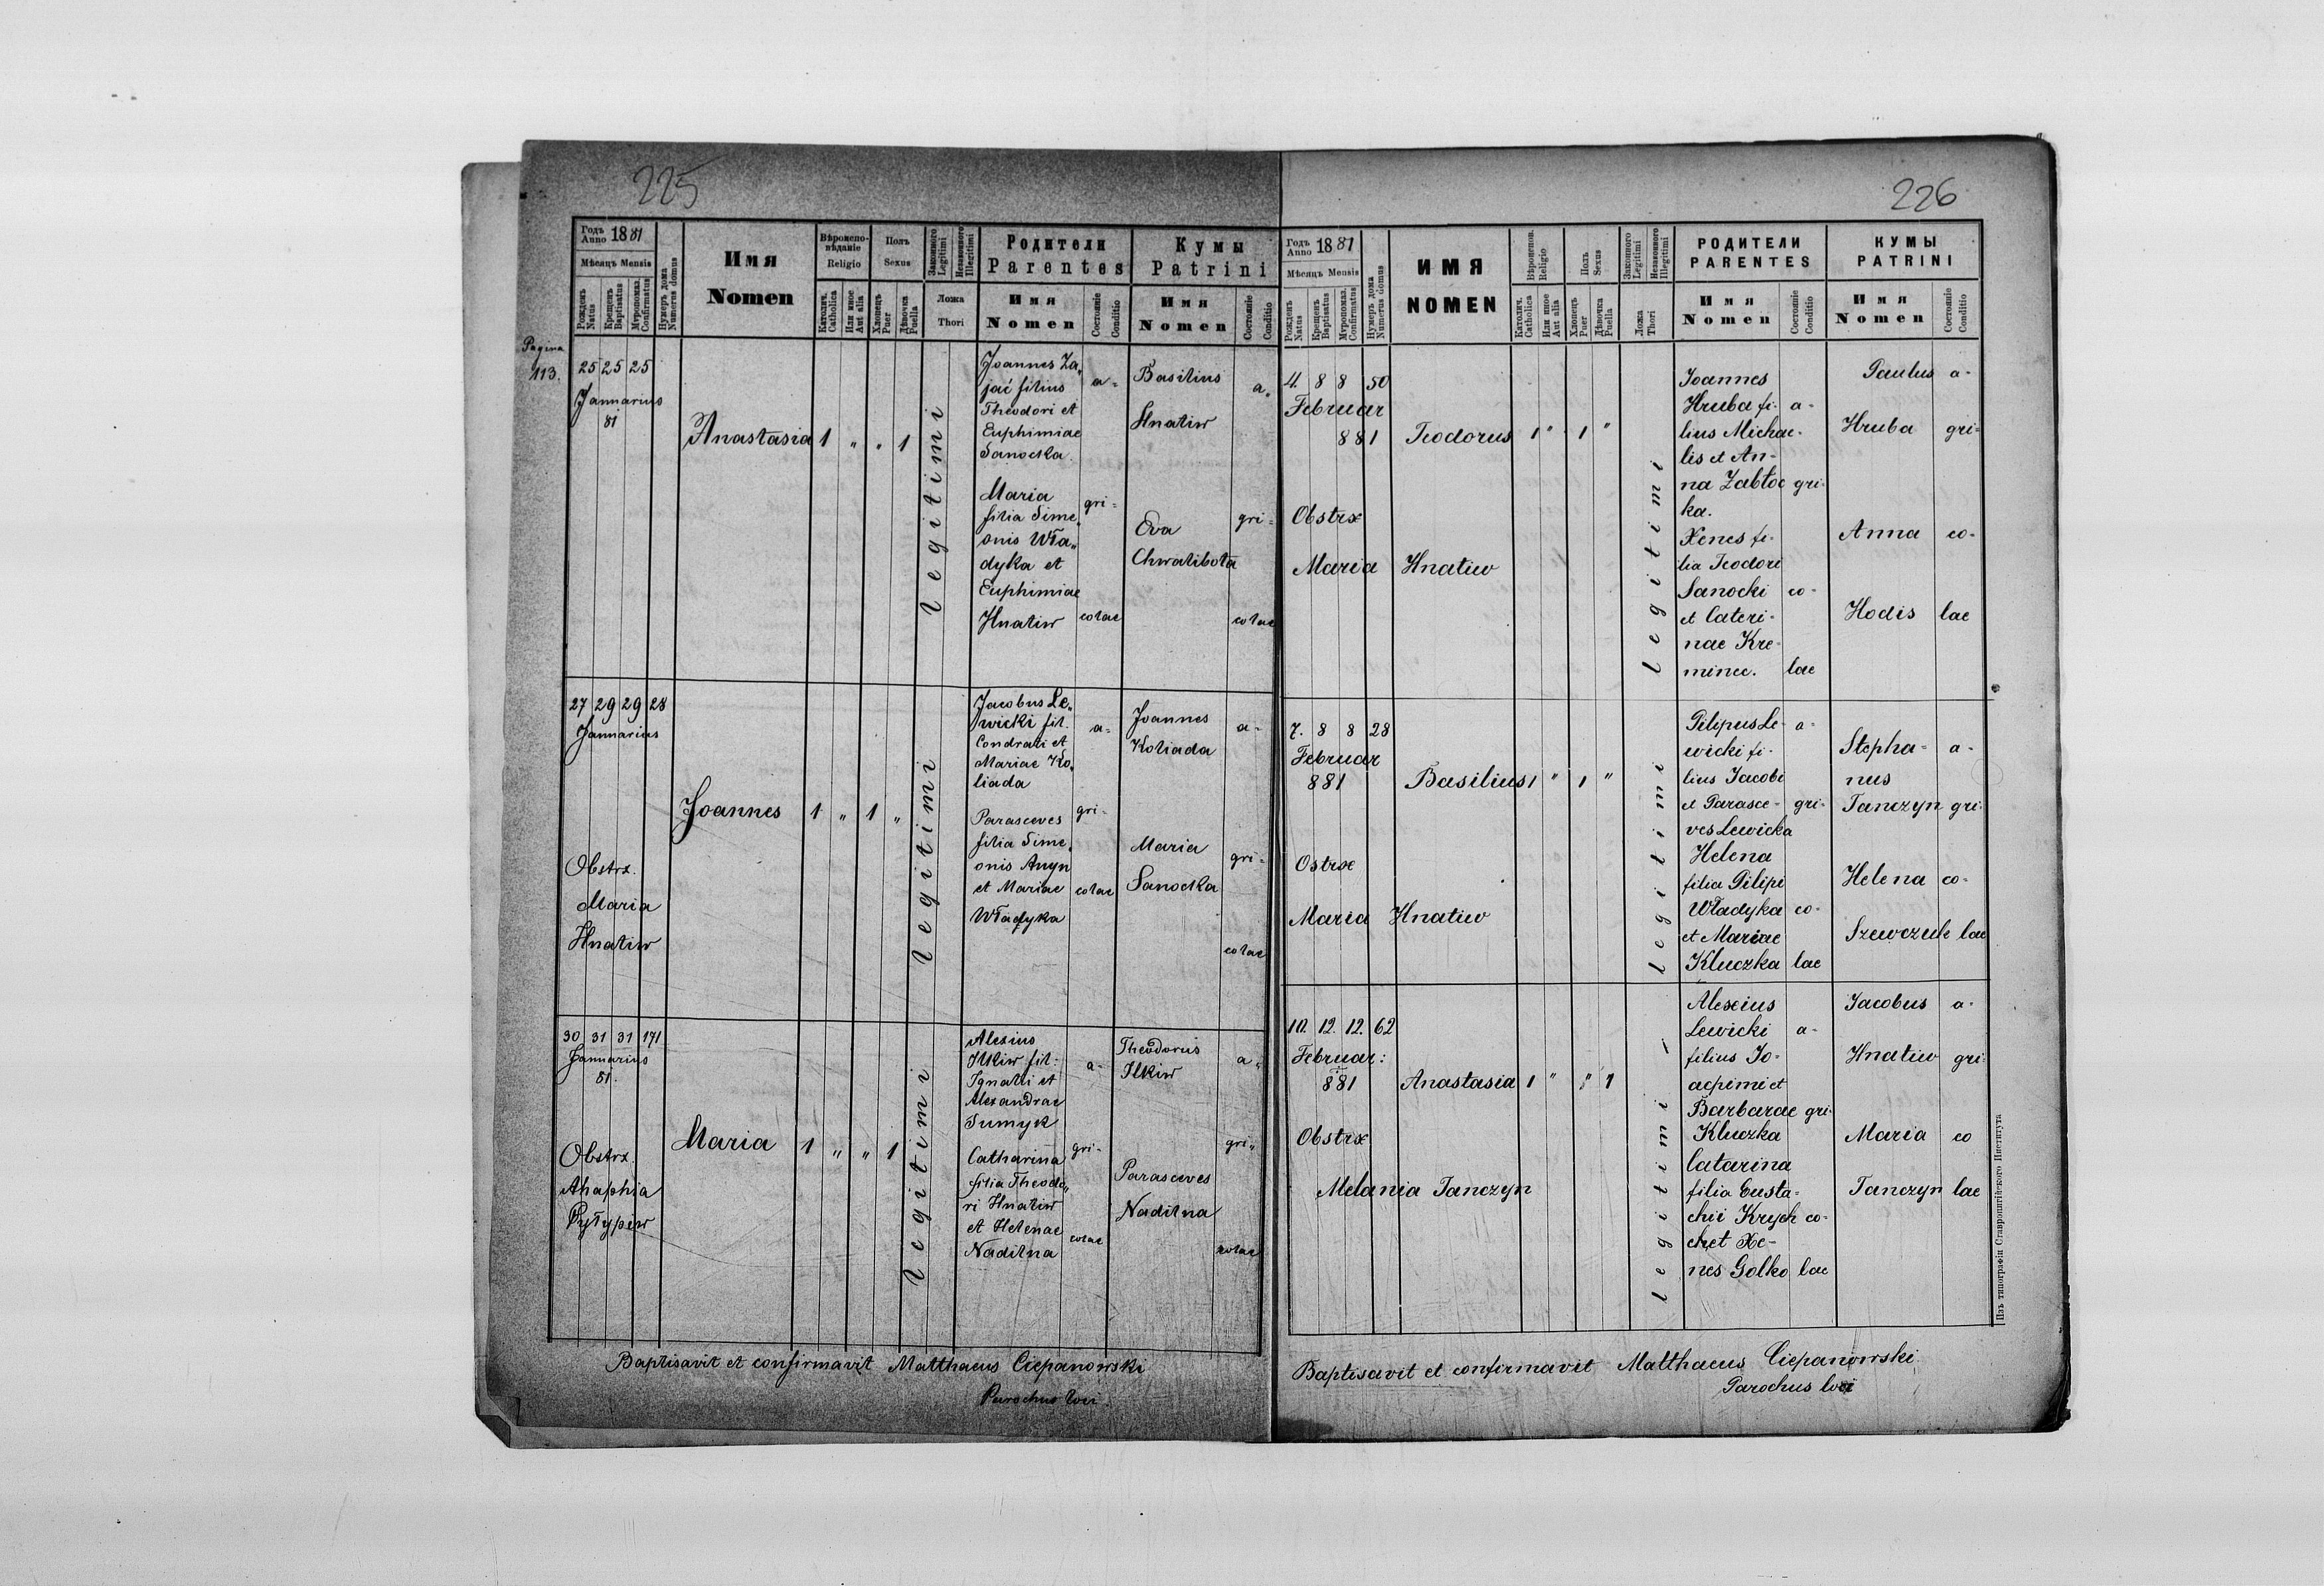 225
Годъ Anno 1881
Мѣсяцъ Mensis
Рожденъ Natus
Крещенъ Baptisatus
Муропомаз. Confirmatus
Нумеръ дома Numerus domus
Имя
Nomen
Вѣроиспо-
вѣданіе
Religio
Католич. Catholica
Или иное Aut alia
Полъ
Sexus
Хлопецъ Puer
Дѣвочка Puella
Законного Legitimi
Незаконного Illegitimi
Ложа
Thori
Родители
Parentes
Имя
Nomen
Состояніе Conditio
Кумы
Patrini
Имя
Nomen
Состояніе Conditio
Pagina
113.
25 25 25
Januarius
81
Anastasia 1 " " 1
Legitimi
Joannes Za„
jać filius
Theodori et
Euphimiae
Sanocka.
Maria
filia Sime„
onis Wła„
dyka et
Euphimiae
Hnatiw
a-
gri-
colae
Basilius
Hnatiw
Eva
Chwalibota
a-
gri-
colae
27 29 29 28
Januarius
Obstrx.
Maria
Hnatiw
Joannes 1 " 1 "
Legitimi
Jacobus Le„
wicki fil.
Condrati et
Mariae Ko„
liada
Parasceves
filia Sime„
onis Anyn
et Mariae
Władyka
a-
gri-
colae
Joannes
Koliada
Maria
Sanocka
a-
gri-
colae
30 31 31 171
Januarius
81.
Obstrx.
Ahaphia
Pyłypiw
Maria 1 " " 1
Legitimi
Alexius
Ilkiw fil:
Ignatii et
Alexandrae
Sumyk
Catharina
filia Theodo„
ri Hnatiw
et Helenae
Nadilna
a-
gri-
colae
Theodorus
Ilkiw
Parasceves
Nadilna
a-
gri-
colae
Baptisavit et confirmavit Matthaeus Ciepanowski
Parochus loci.
226
Годъ Anno 1881
Мѣсяцъ Mensis
Рожденъ Natus
Крещенъ Baptisatus
Муропомаз. Confirmatus
Нумеръ дома Numerus domus
ИМЯ
NOMEN
Вѣроиспов. Religio
Католич. Catholica
Или иное Aut alia
Полъ Sexus
Хлопецъ Puer
Дѣвочка Puella
Законного Legitimi
Незаконного Illegitimi
Ложа Thori
РОДИТЕЛИ
PARENTES
Имя
Nomen
Состояніе Conditio
КУМЫ
PATRINI
Имя
Nomen
Состояніе Conditio
4. 8 8 50
Februar
881
Obstrx
Maria Hnatiw
Teodorus 1 " 1 "
legitimi
Joannes
Hruba fi-
lius Michae-
lis et An-
na Zabłoc
ka.
Xenes fi-
lia Teodori
Sanocki
et Cateri-
nae Kre-
minec.
a-
gri-
co-
lae
Paulus
Hruba
Anna
Hodis
a-
gri-
co-
lae
7. 8 8 28
Februar
881
Ostrx
Maria Hnatiw
Basilius 1 " 1 "
legitimi
Pilipus Le-
wicki fi-
lius Jacobi
et Parasce-
ves Lewicka
Helena
filia Pilipi
Władyka
et Mariae
Kluczka
a-
gri-
co-
lae
Stepha-
nus
Tanczyn
Helena
Szewczuk
a-
gri-
co-
lae
10. 12. 12. 62
Februar:
881
Obstrx
Melania Tanczyn
Anastasia 1 " " 1
legitimi
Alexius
Lewicki
filius Jo-
acpimi et
Barbarae
Kluczka
Catarina
filia Eusta-
chii Krych
et Xe-
nes Golko
a-
gri-
co-
lae
Jacobus
Hnatiw
Maria
Tanczyn
a-
gri-
co
lae
Baptisavit et confirmavit Matthaeus Ciepanowski.
Parochus loci
Изъ типографіи Ставропигійского Института